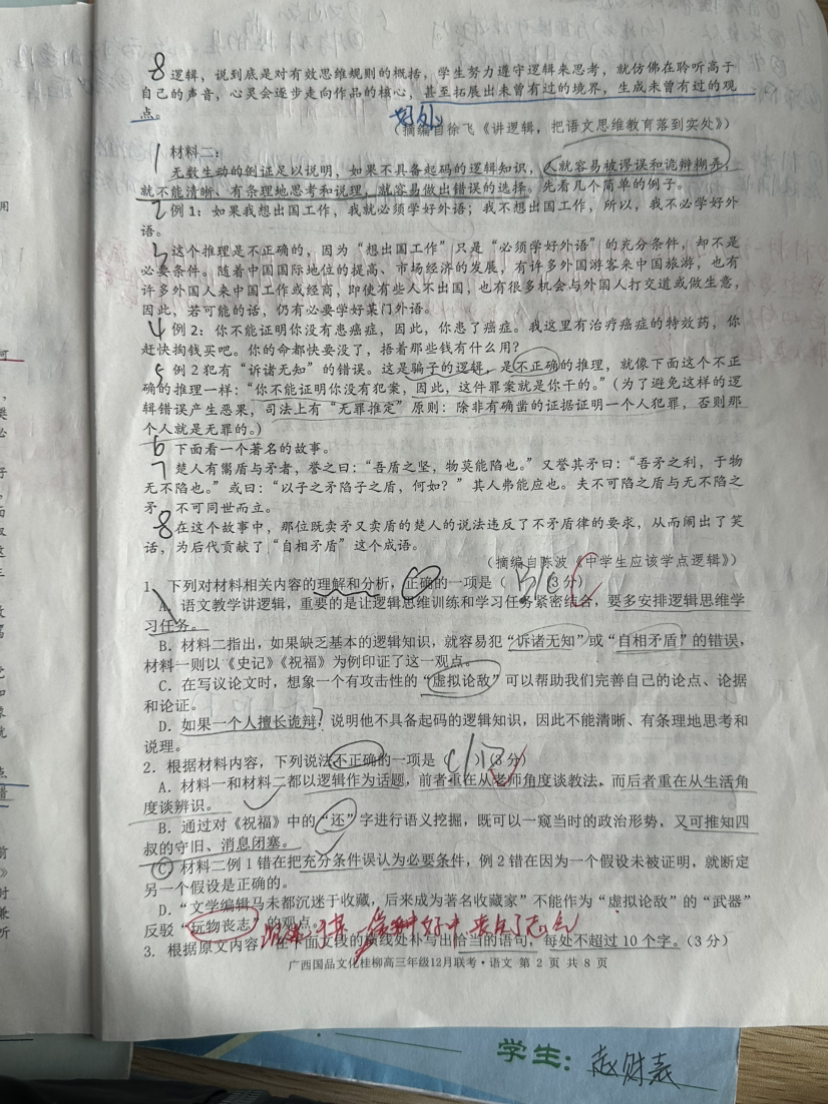 8 逻辑，说到底是对有效思维规则的概括，学生努力遵守逻辑来思考，就仿佛在聆听高于
自己的声音，心灵会逐步走向作品的核心，甚至拓展出未曾有过的境界，生成未曾有过的观
点。
好处
（摘编自徐飞《讲逻辑，把语文思维教育落到实处》）
1 材料二：
无数生动的例证足以说明，如果不具备起码的逻辑知识，人就容易被谬误和诡辩糊弄，
就不能清晰、有条理地思考和说理，就容易做出错误的选择。先看几个简单的例子。
2 例1：如果我想出国工作，我就必须学好外语；我不想出国工作，所以，我不必学好外
语。
3 这个推理是不正确的，因为“想出国工作”只是“必须学好外语”的充分条件，却不是
必要条件。随着中国国际地位的提高、市场经济的发展，有许多外国游客来中国旅游，也有
许多外国人来中国工作或经商，即使有些人不出国，也有很多机会与外国人打交道或做生意，
因此，若可能的话，仍有必要学好某门外语。
4 例2：你不能证明你没有患癌症，因此，你患了癌症。我这里有治疗癌症的特效药，你
赶快掏钱买吧。你的命都快要没了，捂着那些钱有什么用？
5 例2犯有“诉诸无知”的错误。这是骗子的逻辑，是不正确的推理，就像下面这个不正
确的推理一样：“你不能证明你没有犯案，因此，这件罪案就是你干的。”（为了避免这样的逻
辑错误产生恶果，司法上有“无罪推定”原则：除非有确凿的证据证明一个人犯罪，否则那
个人就是无罪的。）
6 下面看一个著名的故事。
7 楚人有鬻盾与矛者，誉之曰：“吾盾之坚，物莫能陷也。”又誉其矛曰：“吾矛之利，于物
无不陷也。”或曰：“以子之矛陷子之盾，何如？”其人弗能应也。夫不可陷之盾与无不陷之
矛，不可同世而立。
8 在这个故事中，那位既卖矛又卖盾的楚人的说法违反了不矛盾律的要求，从而闹出了笑
话，为后代贡献了“自相矛盾”这个成语。
（摘编自陈波《中学生应该学点逻辑》）
1. 下列对材料相关内容的理解和分析，正确的一项是（ B/C ）（3分）
A. 语文教学讲逻辑，重要的是让逻辑思维训练和学习任务紧密结合，要多安排逻辑思维学
习任务。
B. 材料二指出，如果缺乏基本的逻辑知识，就容易犯“诉诸无知”或“自相矛盾”的错误，
材料一则以《史记》《祝福》为例印证了这一观点。
C. 在写议论文时，想象一个有攻击性的“虚拟论敌”可以帮助我们完善自己的论点、论据
和论证。
D. 如果一个人擅长诡辩？说明他不具备起码的逻辑知识，因此不能清晰、有条理地思考和
说理。
2. 根据材料内容，下列说法不正确的一项是（ C/B ）（3分）
A. 材料一和材料二都以逻辑作为话题，前者重在从老师角度谈教法，而后者重在从生活角
度谈辨识。
B. 通过对《祝福》中的“还”字进行语义挖掘，既可以一窥当时的政治形势，又可推知四
叔的守旧、消息闭塞。
C 材料二例1错在把充分条件误认为必要条件，例2错在因为一个假设未被证明，就断定
另一个假设是正确的。
D. “文学编辑马未都沉迷于收藏，后来成为著名收藏家”不能作为“虚拟论敌”的“武器”
反驳“玩物丧志”的观点。
3. 根据原文内容，在下面文段的横线处补写出恰当的语句，每处不超过10个字。（3分）
广西国品文化桂柳高三年级12月联考·语文 第 2 页 共 8 页
学生：